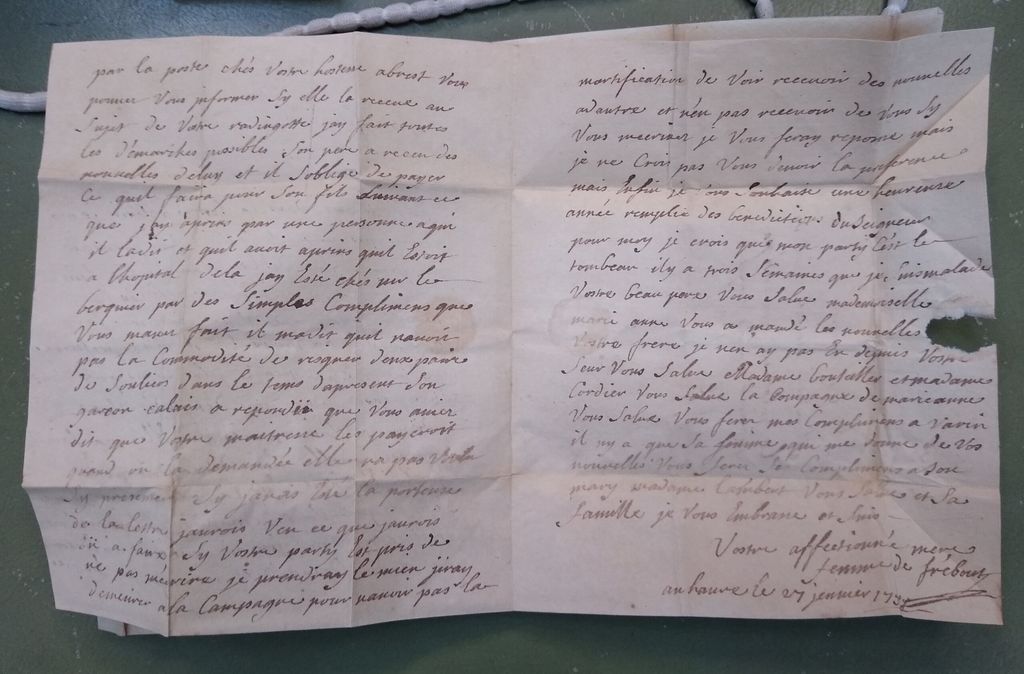 par la poste chés vostre hostesse abrest vous
pouvez vous jnformer sy elle la receue au
sujet de vótre redingotte jay fait toutes
les démarches possibles son pere a receu des
nouvelles deluy et il soblige de payer
ce quil faira pour son fils suivant ce
que jay apris par une personne aqui
il ladit et quil avoit apris quil Estoit
a lhopital dela jay Esté chés mr le
berquier par des simples Complimens que
vous mavez fait il madit quil navoit
pas la Commodité de risquer deux paire
de souliers dans le tems dapresent son
garçon calais a repondu que vous aviez
dit que vostre maitresse les payeroit
quand on la demandée elle na pas voulu
sy presenter sy javois Esté la porteuse
de la lettre jaurois veu ce que jaurois
eu a faire sy vostre party Est pris de
ne pas mécrire je prendray le mien jiray
demeurer a la Campagne pour navoir pas la
mortification de voir recevoir des nouvelles
adautre et n'en pas recevoir de vous sy
vous mecrivez je vous feray reponse mais
je ne Crois pas vous devoir la preference
mais Enfin je vous souhaite une heureuse
année remplie des benedictions du seigneur
pour moy je crois que mon party C'est le
tombeau il y a trois semaines que je suis malade
vostre beau pere vous salue mademoiselle
marie anne vous a mandé les nouvelles
vostre frere je n'en ay pas Eu depuis vostre
seur vous salue Madame bouteiller et madame
Cordier vous salue la compagne de marie anne
vous salue vous ferez mes Complimens a varin
il ny a que sa femme qui me donne de vos
nouvelles vous ferez ses Complimens a son
mary madame lambert vous salue et sa
famille je vous Embrasse et suis
Vostre affectionnée mere
femme de frebourg
au havre le 27 jenvier